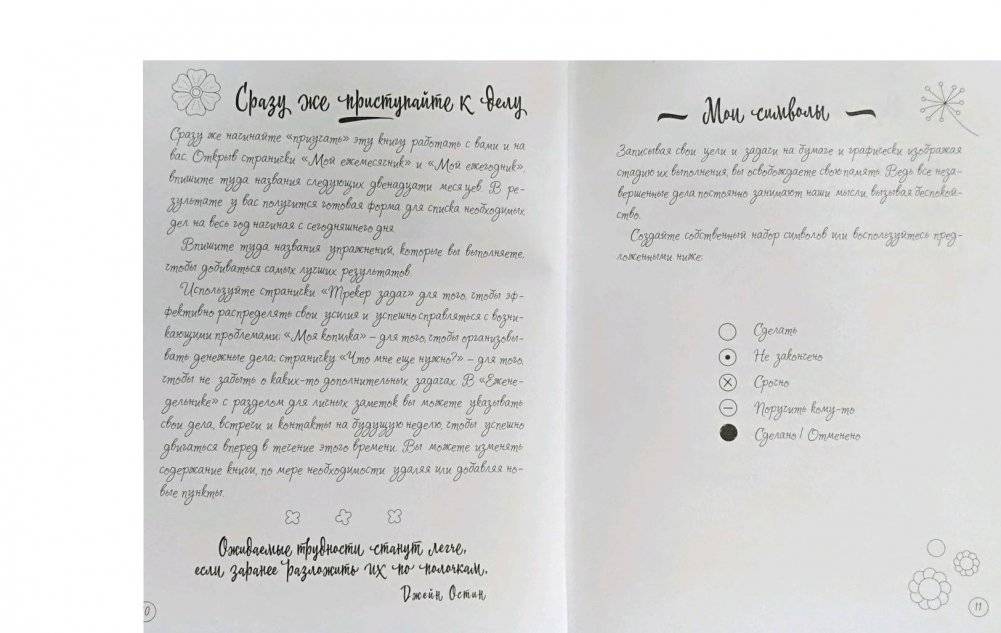 Сразу же приступайте к делу
Сразу же начинайте «приучать» эту книгу работать с вами и на
вас. Открыв странички «Мой ежемесячник» и «Мой ежегодник»,
впишите туда названия следующих двенадцати месяцев. В ре-
зультате у вас получится готовая форма для списка необходимых
дел на весь год начиная с сегодняшнего дня.
Впишите туда названия упражнений, которые вы выполняете,
чтобы добиваться самых лучших результатов.
Используйте странички «Трекер задач» для того, чтобы эф-
фективно распределять свои усилия и успешно справляться с возни-
кающими проблемами; «Моя копилка» – для того, чтобы организовы-
вать денежные дела; страничку «Что мне еще нужно?» – для того,
чтобы не забыть о каких-то дополнительных задачах. В «Ежене-
дельнике» с разделом для личных заметок вы можете указывать
свои дела, встречи и контакты на будущую неделю, чтобы успешно
двигаться вперед в течение этого времени. Вы можете изменять
содержание книги, по мере необходимости удаляя или добавляя но-
вые пункты.
Ожидаемые трудности станут легче,
если заранее разложить их по полочкам.
Джейн Остин
0
Мои символы
Записывая свои цели и задачи на бумаге и графически изображая
стадию их выполнения, вы освобождаете свою память. Ведь все неза-
вершенные дела постоянно занимают наши мысли, вызывая беспокой-
ство.
Создайте собственный набор символов или воспользуйтесь пред-
ложенными ниже:
Сделать
Не закончено
Срочно
Поручить кому-то
Сделано / Отменено
11